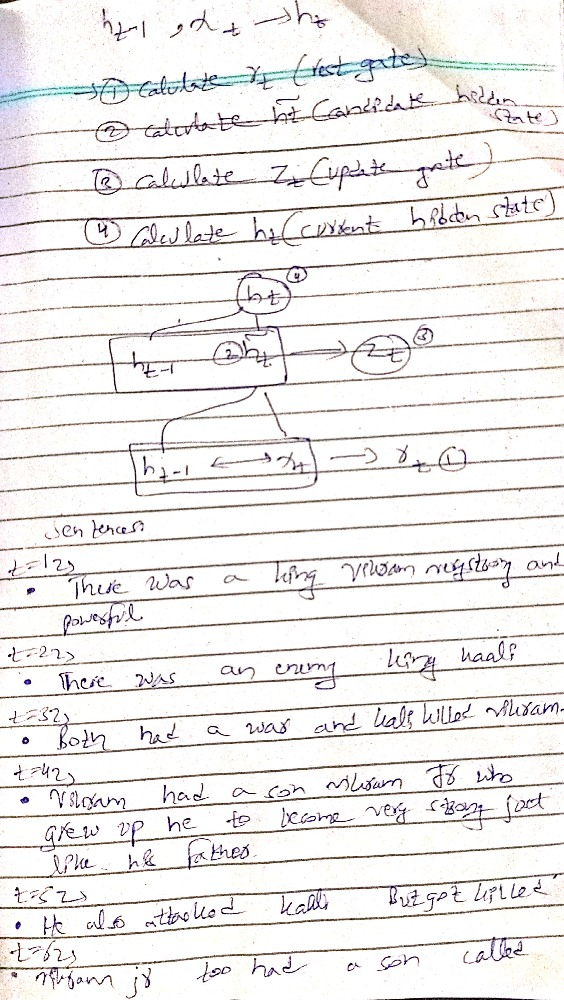 h_t-1 , x_t → h_t
→ ① Calculate r_t (rest gate)
② calculate h̃_t (candidate hidden state)
③ calculate z_t (update gate)
④ calculate h_t (current hidden state)
h_t ④
h_t-1 ② h̃_t → z_t ③
h_t-1 ↔ x_t → r_t ①
Sentences:
t=1→
• There was a king Vikram very strong and
powerful
t=2→
• There was an enemy king kaali
t=3→
• Both had a war and kali killed vikram.
t=4→
• Vikram had a son vikram Jr who
grew up he to become very strong just
like his father.
t=5→
• He also attacked kalli But got killed
t=6→
• vikram jr too had a son called